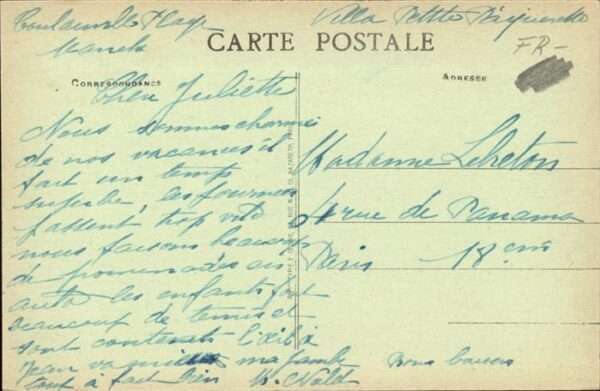 Villa Petite
Plage
Manche
CARTE POSTALE
FR-
CORRESPONDANCE
ADRESSE
Chère Juliette
Nous sommes charmé
de nos vacances il
fait un temps
superbe, les journées
passent trop vite
nous faisons beaucoup
de promenades en
auto les enfants font
beaucoup de tennis et
sont contents
Jean va ma jambe
tout à fait bien
Bons baisers
Madame Lebreton
rue de Panama
Paris 18 eme